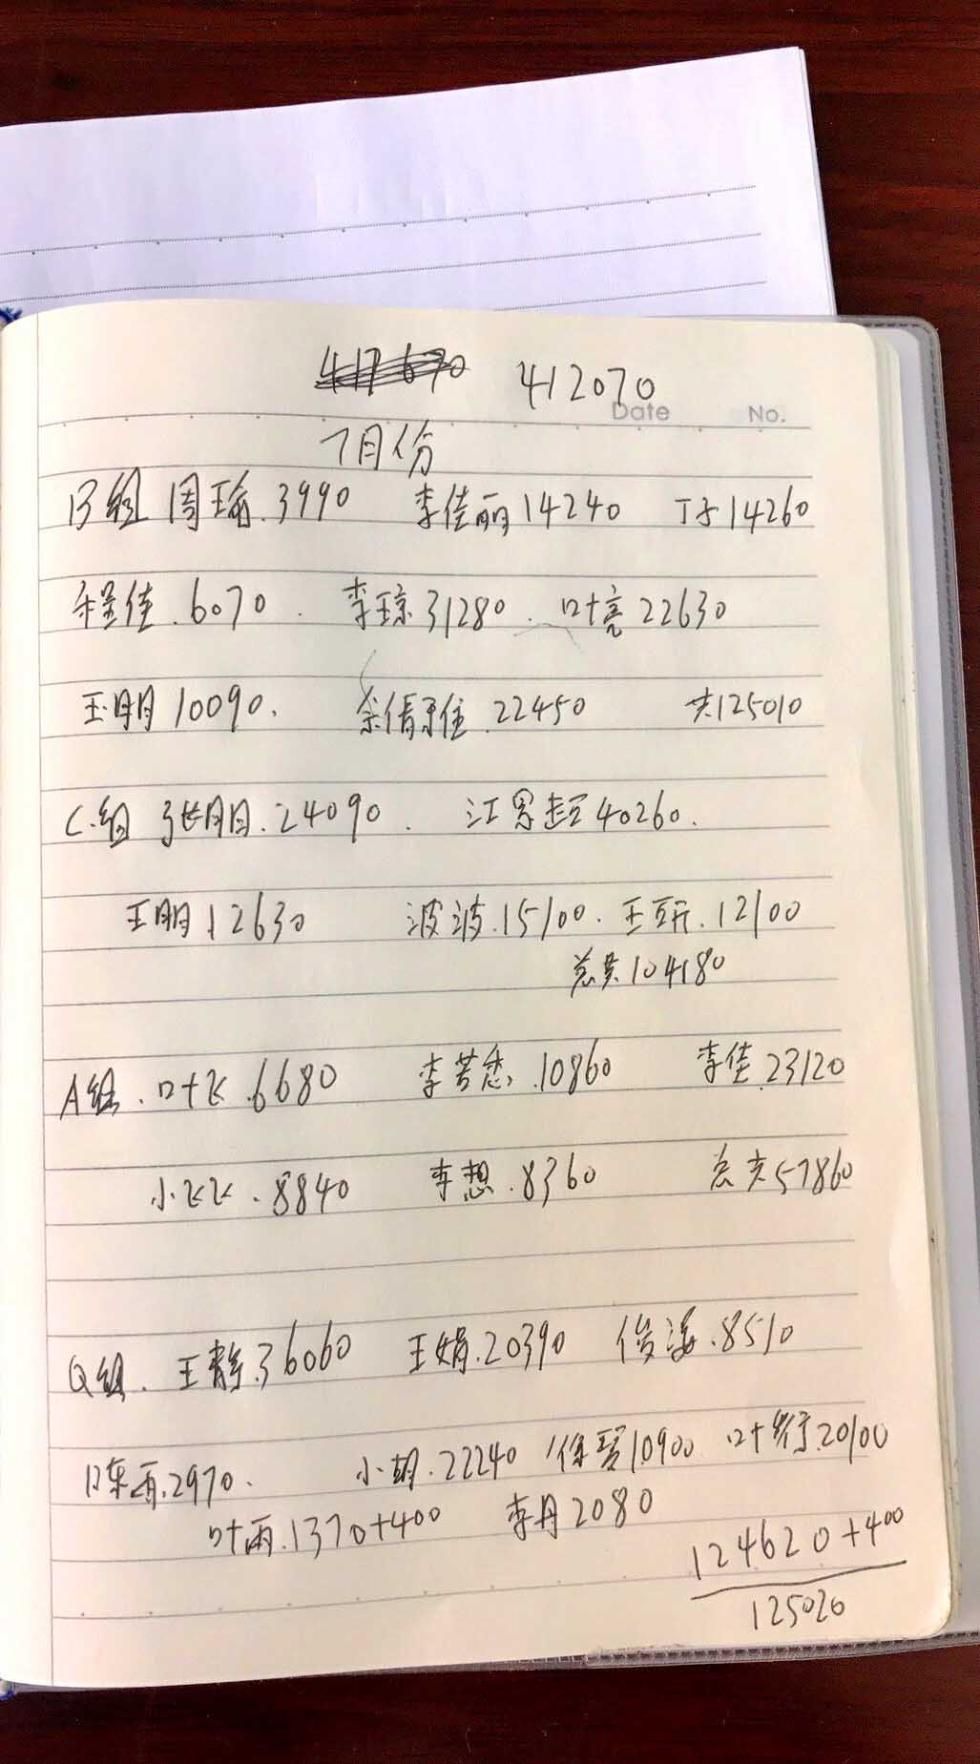 412070
Date No.
7月份
B组 周瑜.3990 李佳丽14240 丁子14260
程佳.6070. 李琼31280. 叶亮22630
王明10090. 余倩雅.22450 共125010
C.组 张明.24090. 江恩超40260.
王明12630 波波.15100. 王研.12100
总共104180
A组.叶飞.6680 李若愚.10860 李佳.23120
小飞飞.8840 李想.8360 总共57860
Q组.王静.36060 王娟.20390 俊海.8510
陈雨.2970. 小胡.22240 徐琴10900 叶行.20100
叶雨.1370+400 李丹2080
124620+400
125020